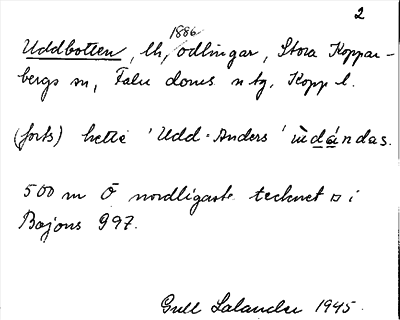 2
1886
Uddbotten, lh, odlingar, Stora Koppar-
bergs sn, Falu doms. tg, Kopp l.
(forts) hette 'Udd-Anders' ùdándas.
500 m Ö nordligaste tecknet □ i
Bojons 997.
Gull Salander 1945.